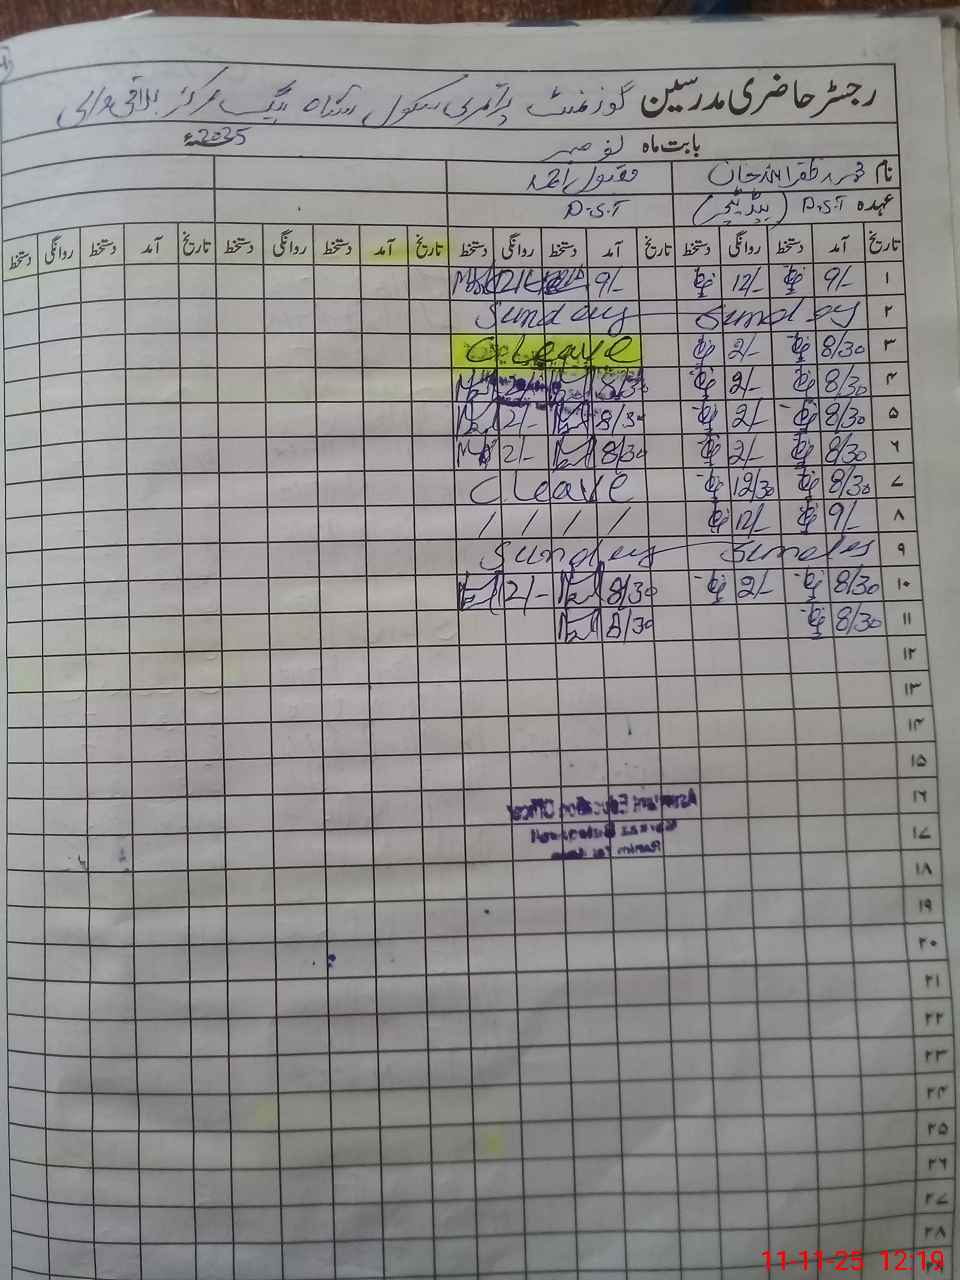 رجسٹر حاضری مدرسین گورنمنٹ پرائمری سکول بیگ مرکز
بابت ماہ نومبر 2025ء
نام محمد ظفر اللہ خان مقبول احمد
عہدہ P.S.T (ہیڈ ٹیچر) P.S.T
تاریخ آمد دستخط روانگی دستخط تاریخ آمد دستخط روانگی دستخط تاریخ آمد دستخط روانگی دستخط تاریخ آمد دستخط روانگی دستخط
۱ 9/- 12/- 9/- 12/-
۲ Sunday Sunday
۳ 8/30 2/- C Leave
۴ 8/30 2/- 8/30 2/-
۵ 8/30 2/- 8/30 2/-
۶ 8/30 2/- 8/30 2/-
۷ 8/30 12/30 C Leave
۸ 9/- 12/- / / / /
۹ Sunday Sunday
۱۰ 8/30 2/- 8/30 2/-
۱۱ 8/30 8/30
۱۲
۱۳
۱۴
۱۵
۱۶
Assistant Education Officer
۱۷
۱۸
۱۹
۲۰
۲۱
۲۲
۲۳
۲۴
۲۵
۲۶
۲۷
۲۸
11-11-25 12:19